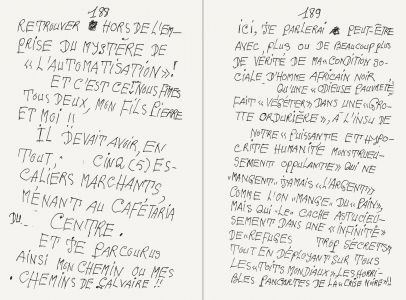 188
RETROUVER HORS DE L'EM-
PRISE DU MYSTÈRE DE
«L'AUTOMATISATION»!
ET C'EST CE NOUS FIMES
TOUS DEUX, MON FILS PIERRE
ET MOI !!
IL DEVAIT AVOIR, EN
TOUT, CINQ (5) ES-
CALIERS MARCHANTS,
MENANT AU CAFÉTARIA
DU CENTRE.
ET JE PARCOURUS
AINSI MON CHEMIN OU MES
CHEMINS DE SALVAIRE !!
189
ICI, JE PARLERAI PEUT-ÊTRE
AVEC PLUS OU DE BEAUCOUP PLUS
DE VÉRITÉ DE MA CONDITION SO-
CIALE D'HOMME AFRICAIN NOIR
QU'UNE «ODIEUSE PAUVRETÉ
FAIT «VÉGÉTER» DANS UNE
TTE ORDURIÈRE», À L'INSU DE
NOTRE «PUISSANTE ET HYPO-
CRITE HUMANITÉ MONSTRUEU-
SEMENT OPPULANTE» QUI NE
«MANGENT» JAMAIS «L'ARGENT»
COMME L'ON «MANGE» DU «PAIN»,
MAIS QUI «LE» CACHE ASTUCIEU-
SEMENT DANS UNE «INFINITÉ»
DE «REFUGES TROP SECRETS»
TOUT EN DÉPLOYANT SUR TOUS
LES «TOITS MONDIAUX» LES HORRI-
BLES PANCARTES DE LA «CRISE NOIRE»!!